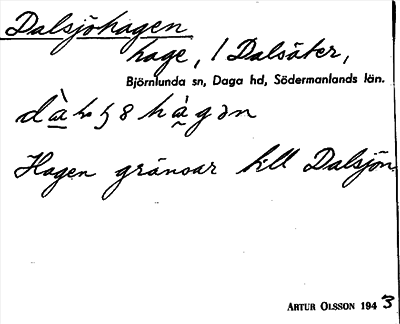 Dalsjöhagen
hage, 1 Dalsäter,
Björnlunda sn, Daga hd, Södermanlands län.
Hagen gränsar till Dalsjön.
ARTUR OLSSON 1943